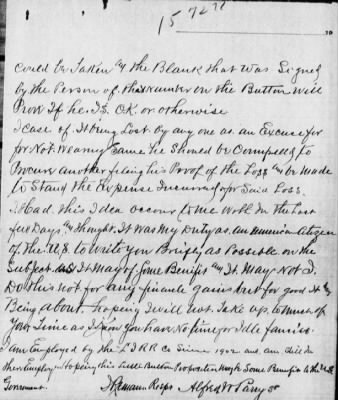 15 72 77
could be Taken & the Blank that was Signed
by the Person of that number on the Button will
Prove If he. Is OK. or otherwise
I case of It being Lost by any one as an Excuse for
for Not. Wearing Same he Should be Compelled to
Procure another filing his Proof of the Loss & be made
to Stand the Expense Incurred for Said Loss.
I Had this Idea occur to me with In the Last
few Days & thought. It was My Duty as an American Citizen
of the U.S. to write you Briefly as Possible on the
Subject as It May of Some Benifit & It. May Not I.
Do this not for any financle gains but for good It
Being about. hoping I will not. Take up to much of
Your Time as I know you have No time for Idle fancies.
I am Employed by the L I RR Co Since 1902 and am still In
their Employ Hoping this Little Button Proposition May be Some Benifit to the
Goverment. I Remain Respy Alfred W Parry Sr